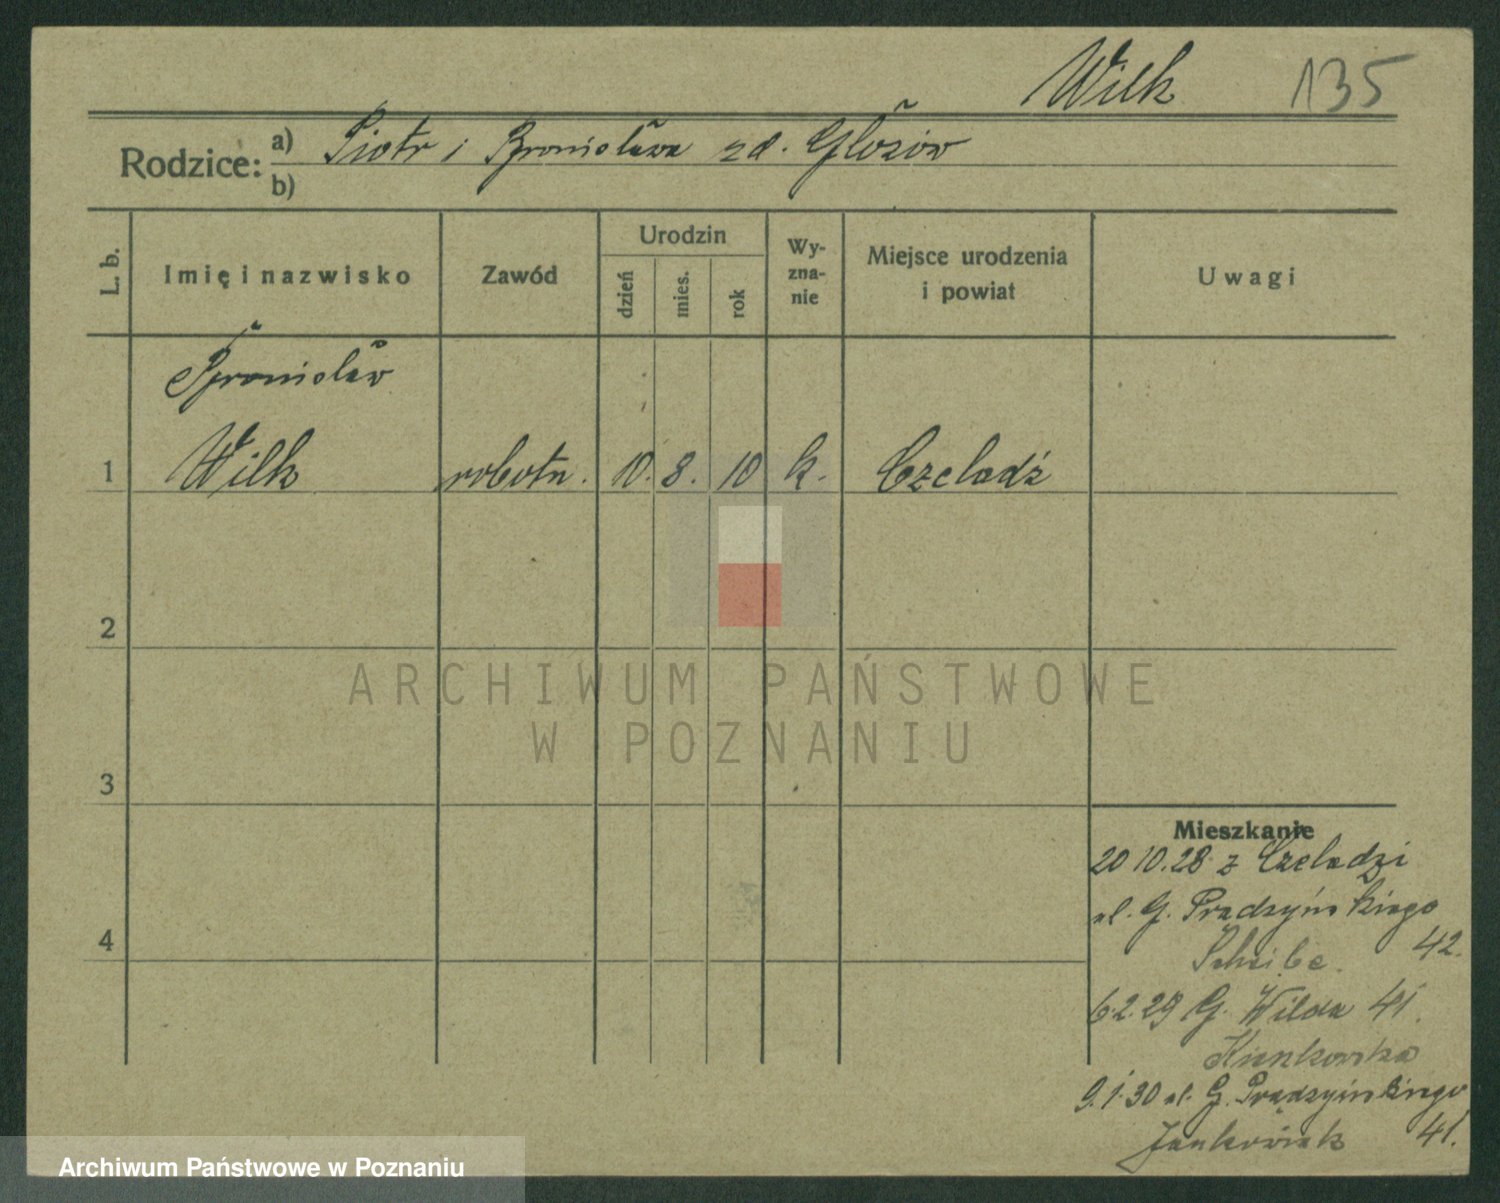 Wilk 135
Rodzice: a) Piotr i Bronisława zd. Głozów
b)
L. b. Imię i nazwisko Zawód Urodzin dzień mies. rok Wy-zna-nie Miejsce urodzenia i powiat Uwagi
Bronisław
1 Wilk robotn. 10. 8. 10 k. Czeladź
2
ARCHIWUM PAŃSTWOWE
W POZNANIU
3
Mieszkanie
20 10.28 z Czeladzi
ul. G. Prądzyńskiego
4 Scheibe. 42.
6.2.29 G. Wilda 41.
9.1.30 ul. G. Prądzyńskiego
Jankowiak 41.
Archiwum Państwowe w Poznaniu